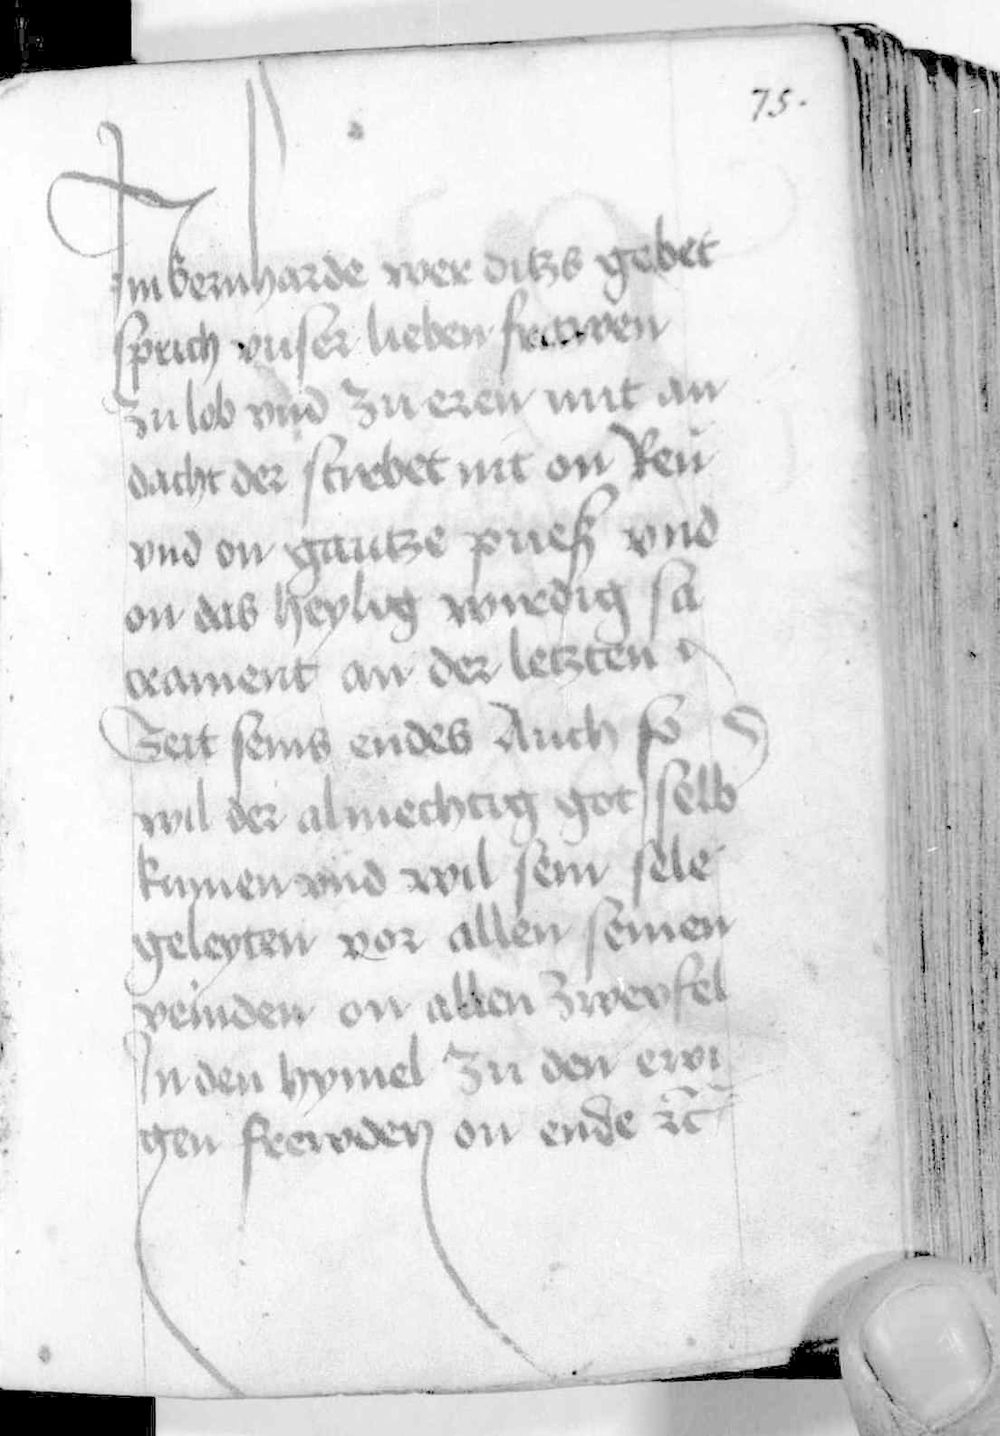 75.
Im bernharde wer ditzs gebet
sprich vnser lieben frawen
zu lob vnd zu eren mit an
dacht der stirbet nit on Reu
vnd on gantze puesß vnd
on das heylig wirdig sa
crament an der letzten
Zeit seins endes Auch so
wil der almechtig got selb
kumen vnd wil sein sele
geleyten vor allen seinen
veinden on allen zweyfel
In den hymel zu den ewi
gen frewden on ende ꝛc̃